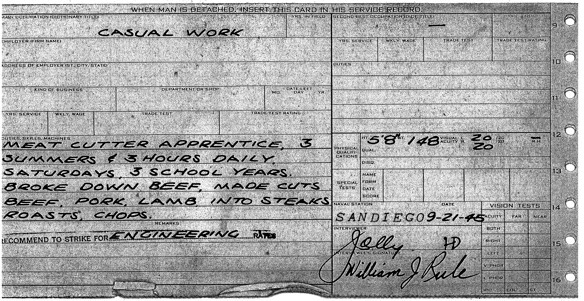 WHEN MAN IS DETACHED, INSERT THIS CARD IN HIS SERVICE RECORD
CASUAL WORK
YRS. IN FIELD
EMPLOYER (FIRM NAME)
YRS. SERVICE WKLY. WAGE TRADE TEST TRADE TEST RATING
ADDRESS OF EMPLOYER (ST., CITY, STATE)
DUTIES
KIND OF BUSINESS DEPARTMENT OR SHOP DATE LEFT
MO. DAY YR.
YRS. SERVICE WKLY. WAGE TRADE TEST TRADE TEST RATING
MEAT CUTTER APPRENTICE, 3
SUMMERS & 3 HOURS DAILY,
SATURDAYS, 3 SCHOOL YEARS,
BROKE DOWN BEEF, MADE CUTS
BEEF, PORK, LAMB INTO STEAKS
ROASTS, CHOPS.
REMARKS
RECOMMEND TO STRIKE FOR ENGINEERING RATES
PHYSICAL QUALIFI-CATIONS
HT. 5'8" 148 20
20
QUAL.
DISQ.
SPECIAL TESTS
NAME
FORM
DATE
SCORE
NAVAL STATION DATE
SAN DIEGO 9-21-45
INTERVIEWER
Jolly
INTERVIEWEE'S SIGNATURE
William J Rule
VISION TESTS
ACUITY FAR NEAR
BOTH
RIGHT
LEFT
9
10
11
12
13
14
15
16